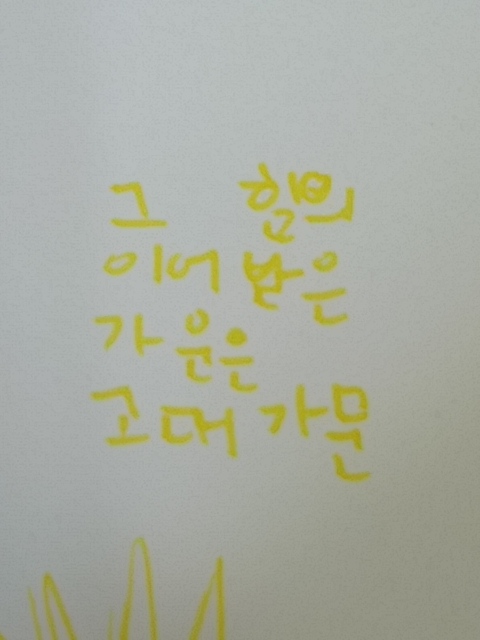 그 힘의
이어 받은
가운은
고대 가문